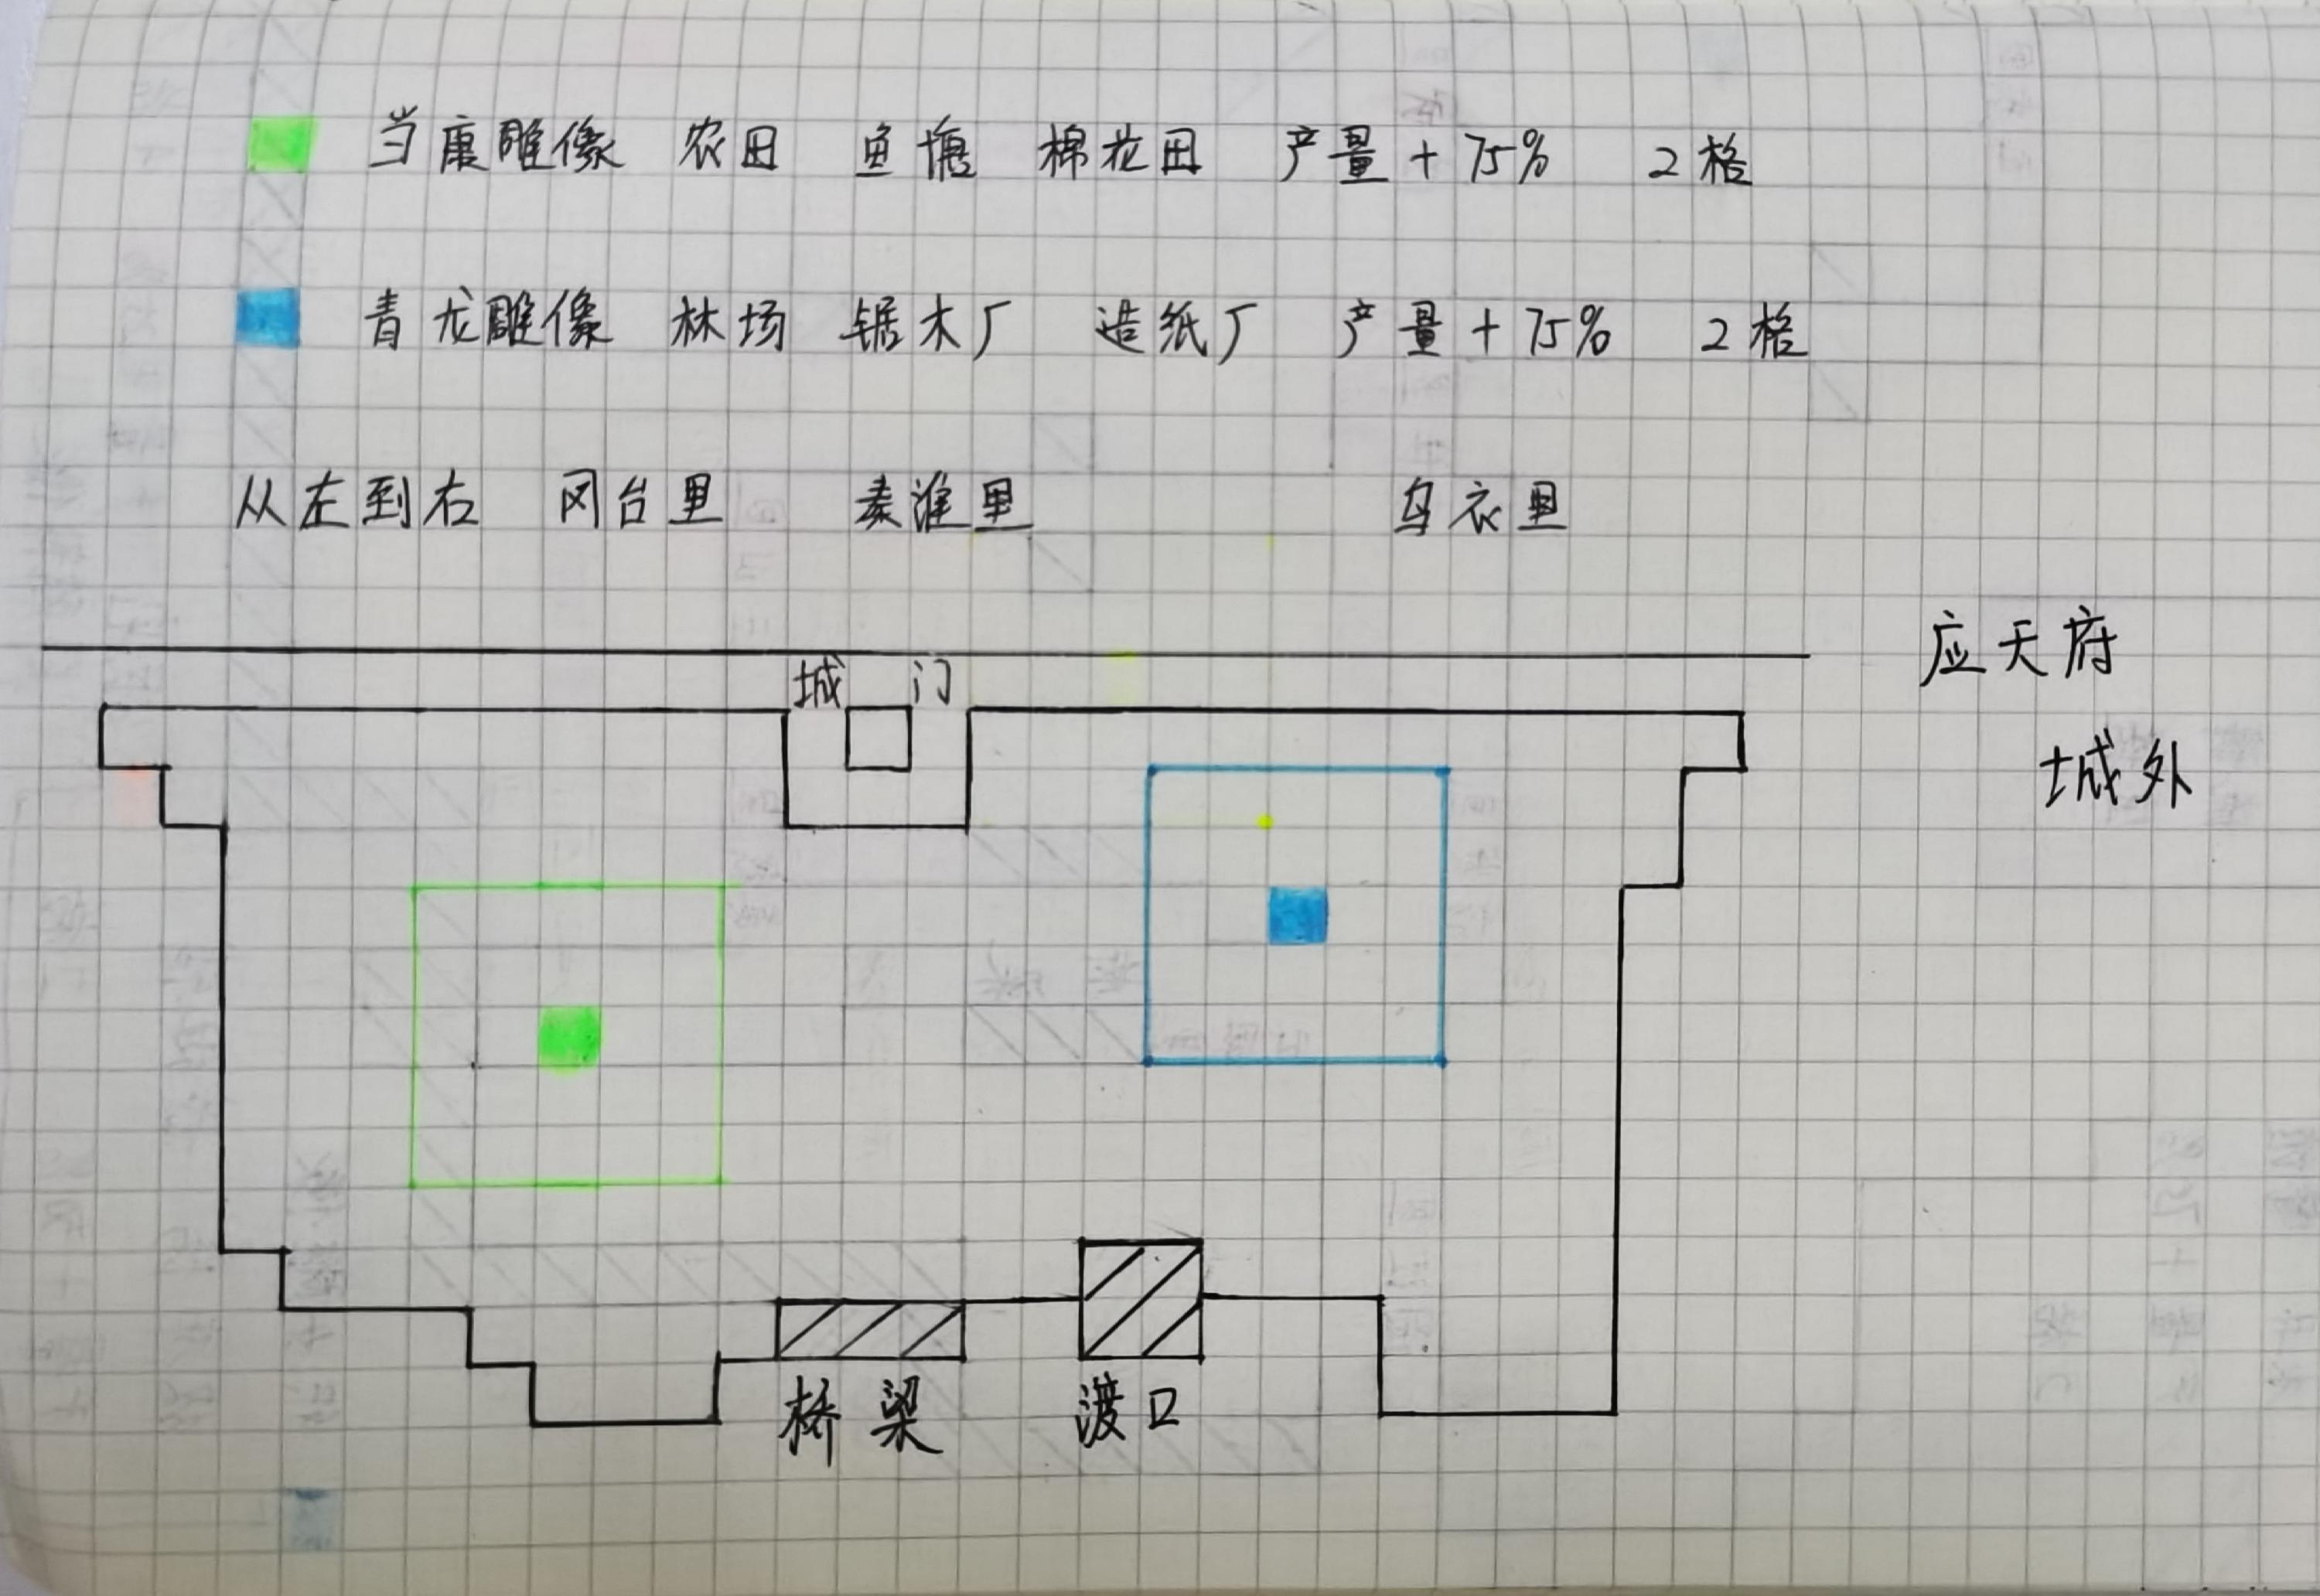 当康雕像 农田 鱼塘 棉花田 产量+75% 2格
青龙雕像 林场 锯木厂 造纸厂 产量+75% 2格
从左到右 冈台里 秦淮里 乌衣里
应天府
城门
城外
桥梁
渡口